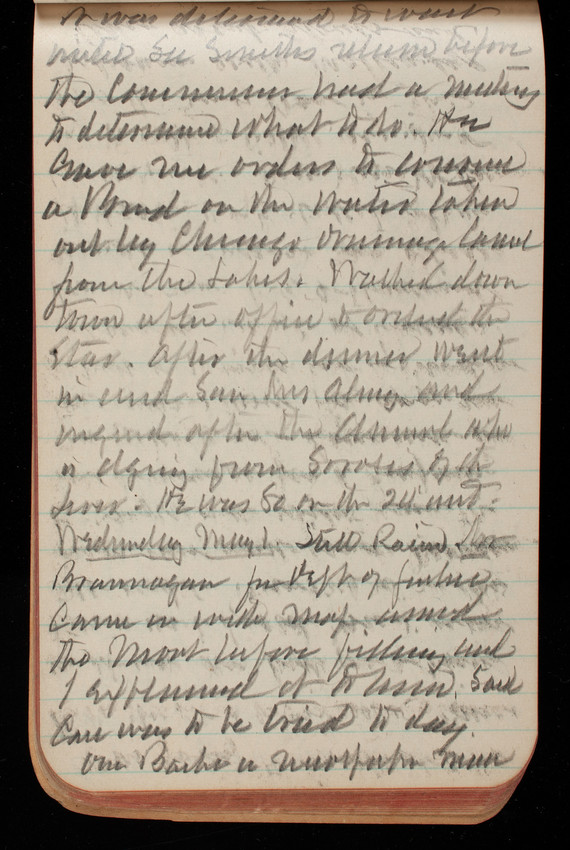 it was determined to wait
until Gen Smiths return before
the Commission had a meeting
to determine what to do. He
Gave me orders to
a Board on the Water taken
out by Chicago Drainage Canal
from the Lakes. Walked down
town after office to the
Star. After the dinner Went
in and Saw Mrs and
after the Admiral who
is dying from of the
liver. He was 80 on the 24
Wednesday May 1. Still Rains. Mr
Brannagan from Dept of Justice
Came in with map
the Mont before filling and
I explained it to him. Said
Case was to be tried to day.
One a newspaper man